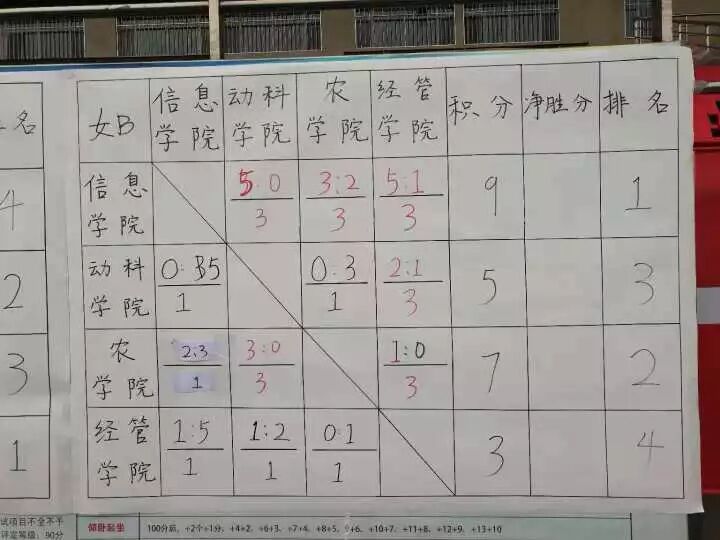 名
4
2
3
1
女B 信息学院 动科学院 农学院 经管学院 积分 净胜分 排名
信息学院 5:0 3 3:2 3 5:1 3 9 1
动科学院 0:5 1 0:3 1 2:1 3 5 3
农学院 2:3 1 3:0 3 1:0 3 7 2
经管学院 1:5 1 1:2 1 0:1 1 3 4
试项目不全不予
评定等级:90分
仰卧起坐 100分后,+2个+1分,+4+2,+6+3,+7+4,+8+5,9+6,+10+7,+11+8,+12+9,+13+10